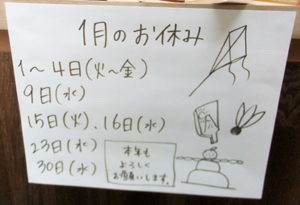 1月のお休み
1〜4日(火〜金)
9日(水)
15日(火)、16日(水)
23日(水)
30日(水)
本年も
ようしく
お願いします。